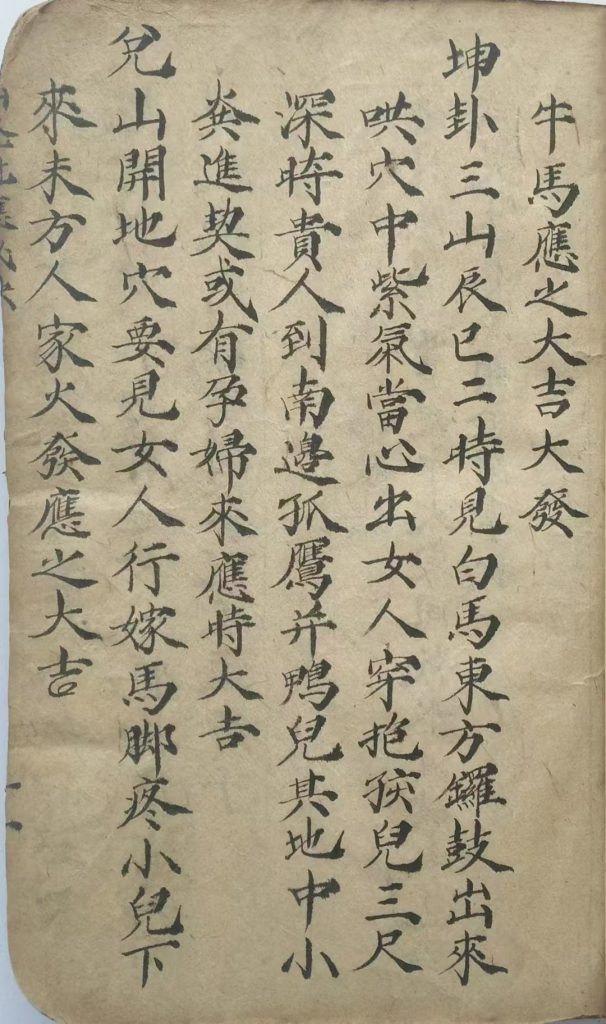 牛馬應之大吉大發
坤卦三山辰巳二時見白馬東方鑼鼓出來
哄穴中紫氣當心出女人穿抱孩兒三尺
深時貴人到南邉孤鴈并鴨兒其地中小
粪進契或有孕婦來應時大吉
兊山開地穴要見女人行嫁馬脚疼小兒下
來未方人家火發應之大吉